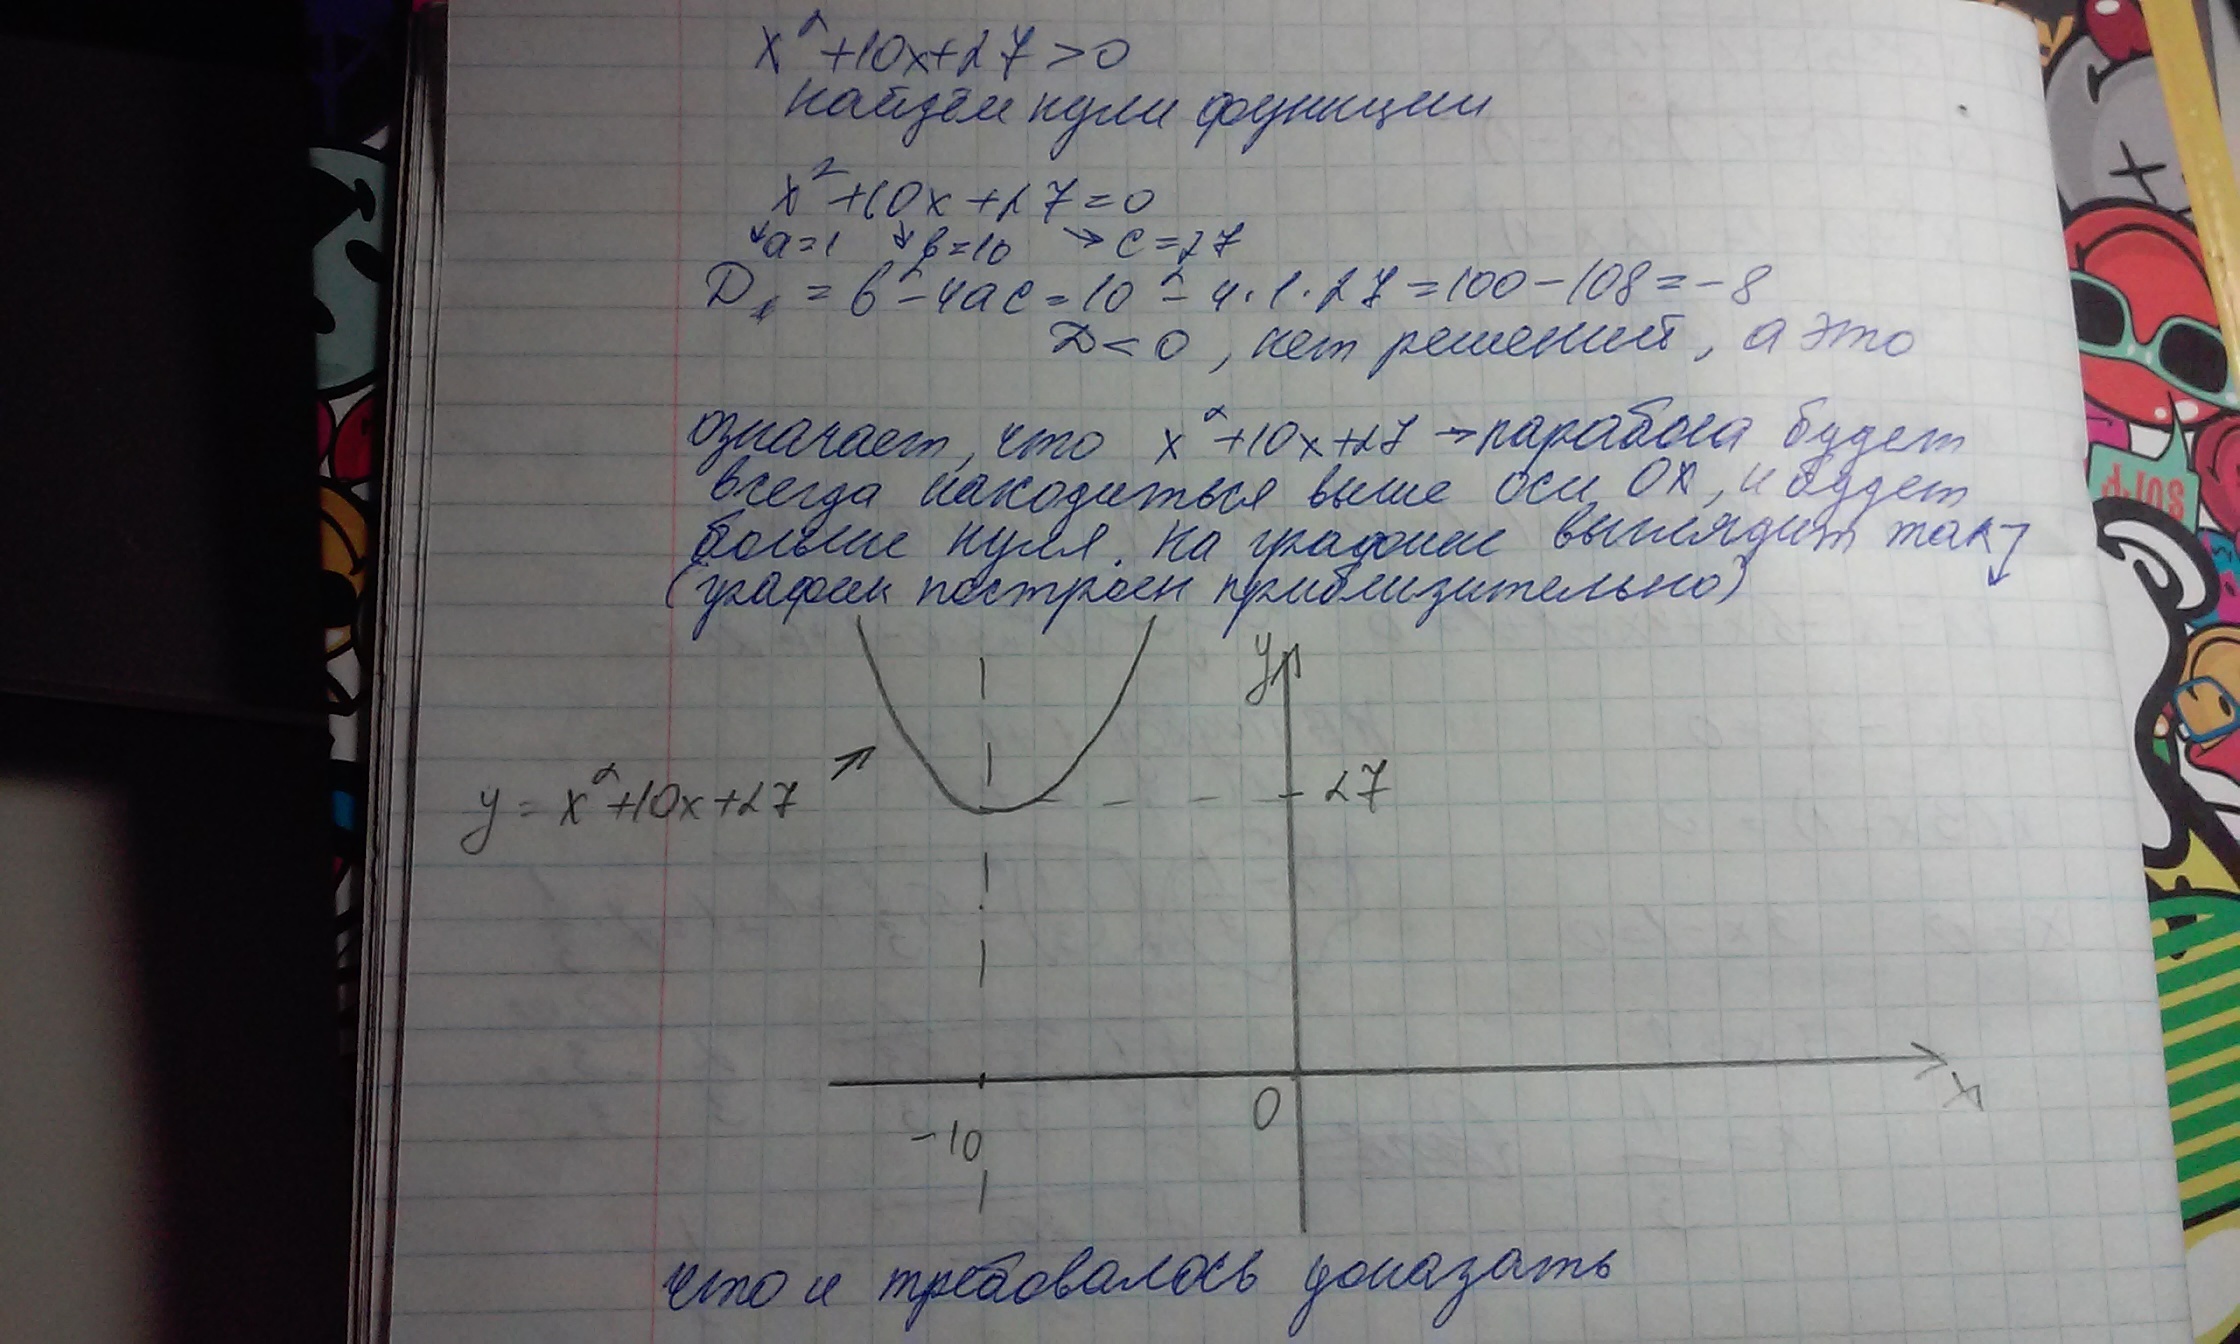 x²+10x+27>0
найдём нули функции
x²+10x+27=0
a=1 b=10 → c=27
D₁ = b²-4ac=10²-4·1·27=100-108=-8
D<0, нет решений, а это
означает, что x²+10x+27 → парабола будет
всегда находиться выше оси OX, и будет
больше нуля. На графике выглядит так
(график построен приблизительно)
y
y = x²+10x+27
27
-10
0
x
что и требовалось доказать